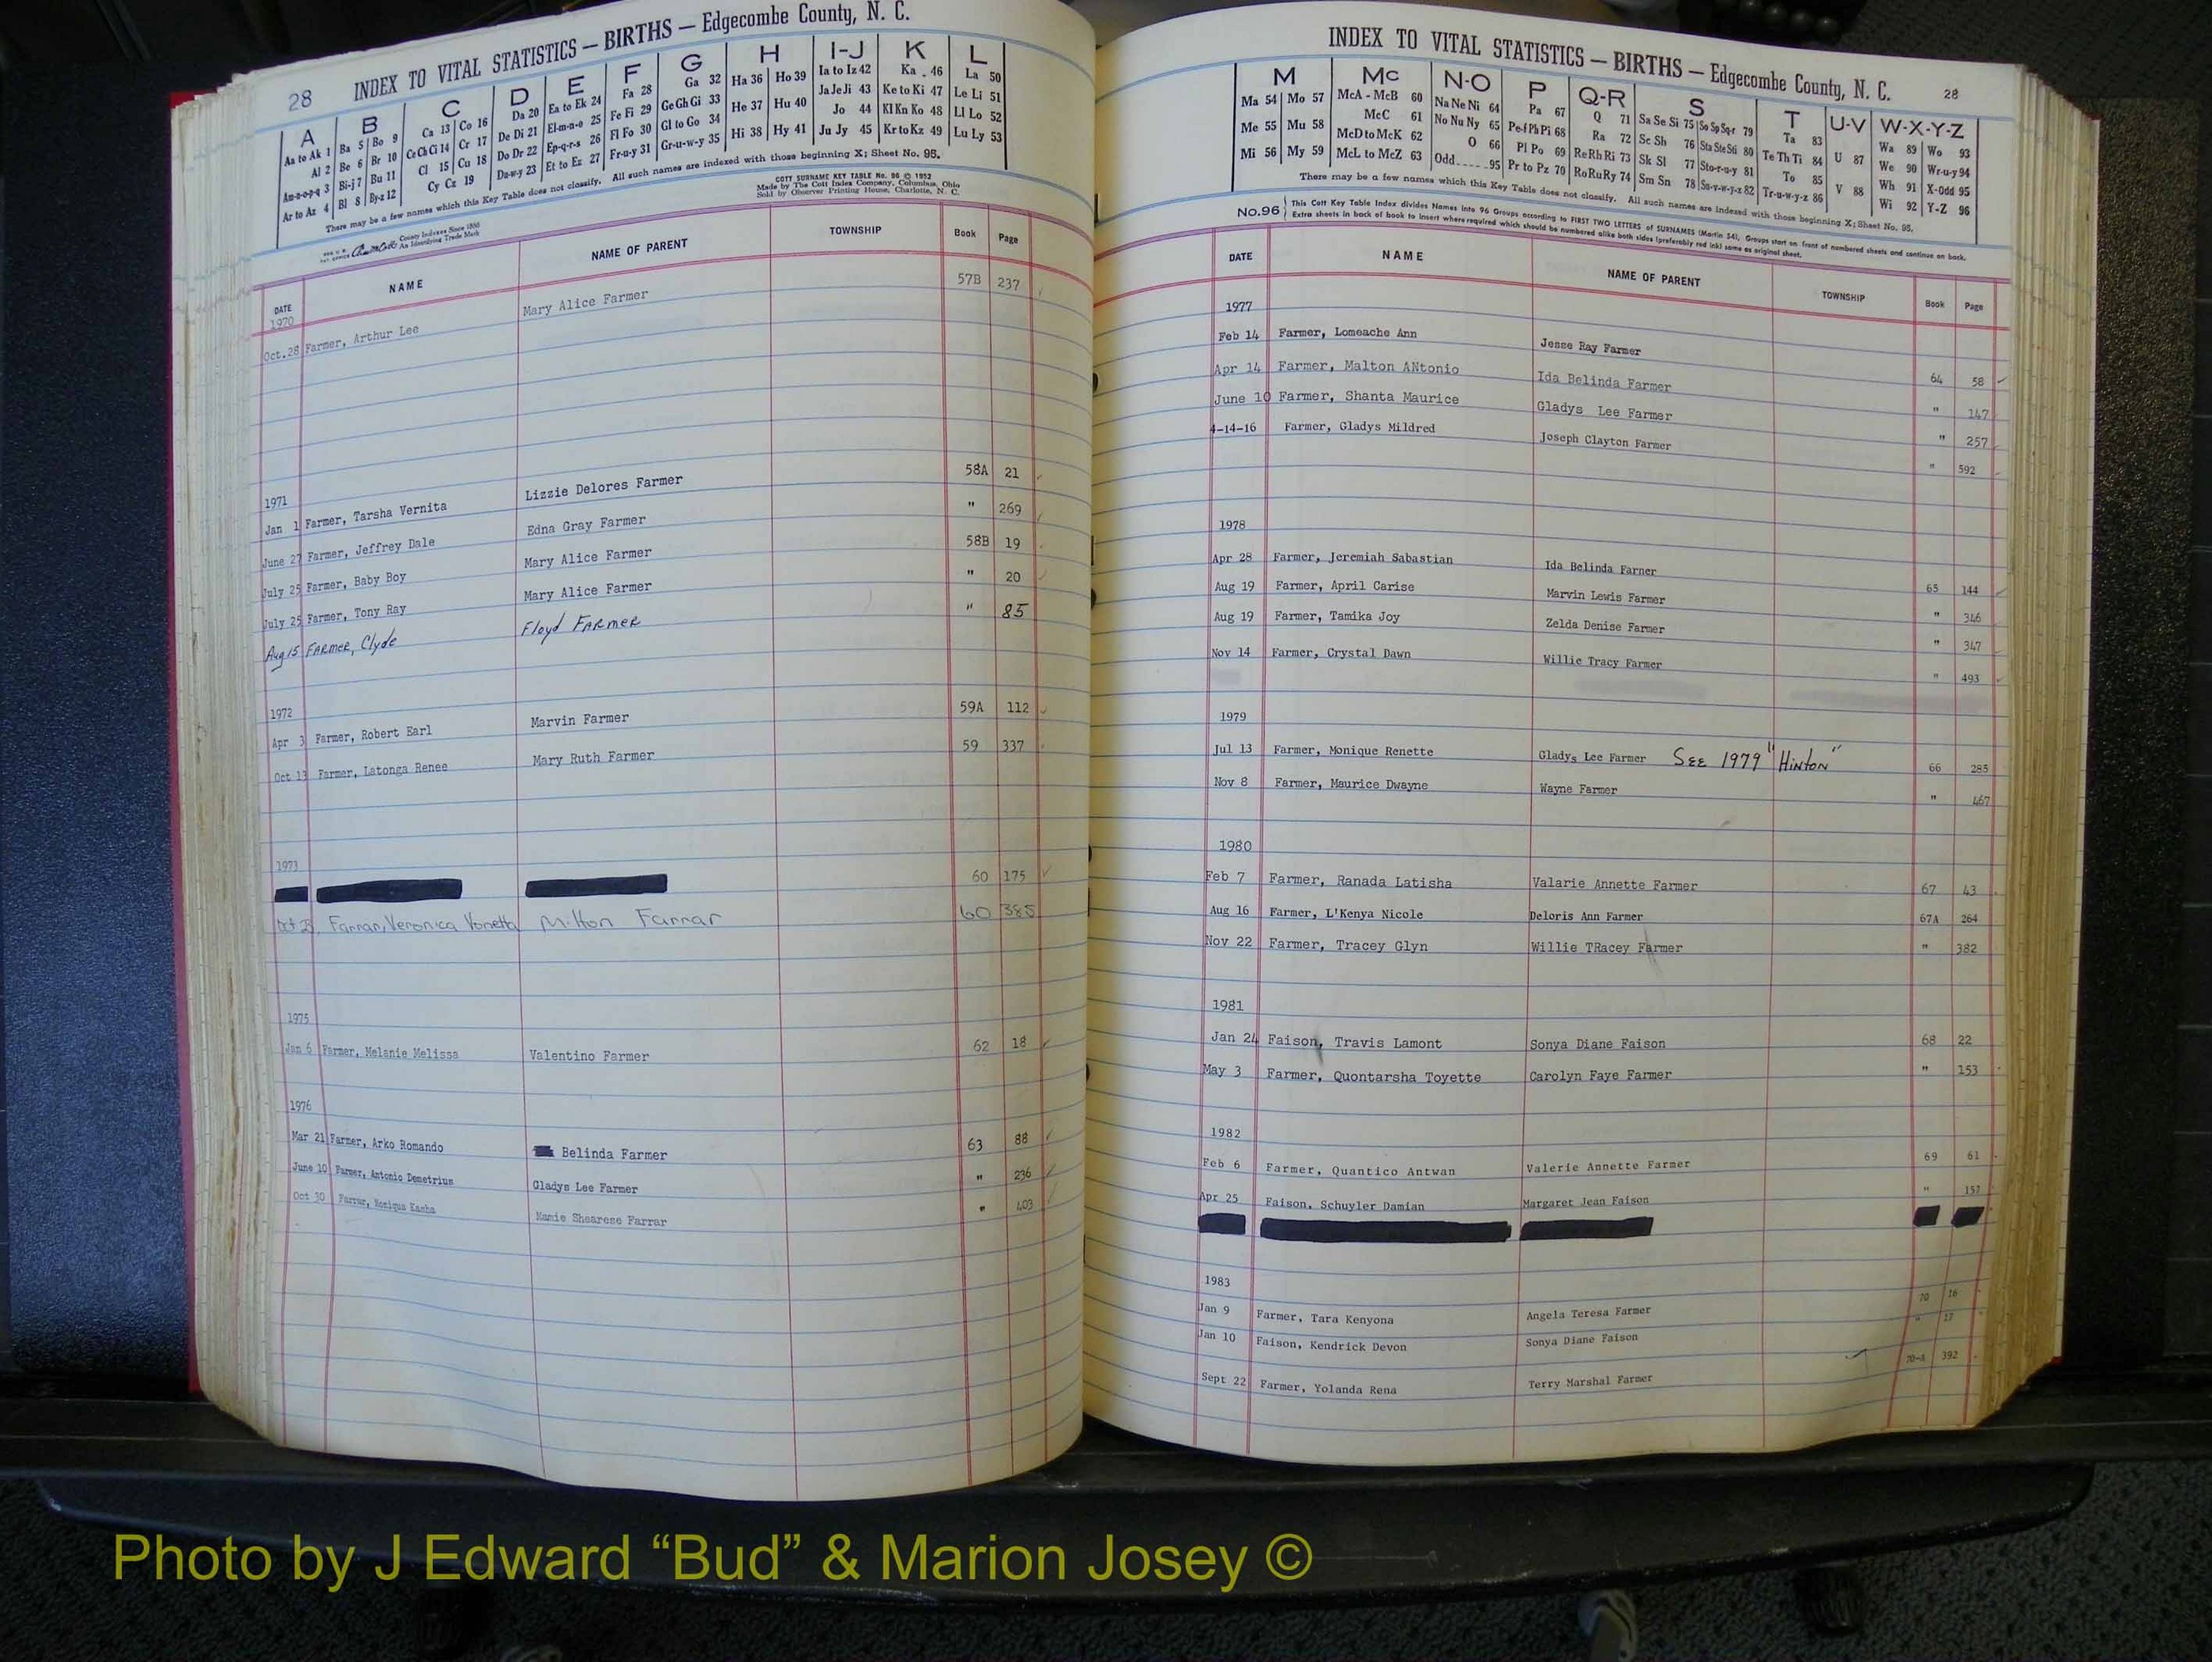 28 INDEX TO VITAL STATISTICS — BIRTHS — Edgecombe County, N. C.
A B C D E F G H I-J K L
Aa to Ak 1 Ba 5 Bo 9 Ca 13 Co 16 Da 20 Ea to Ek 24 Fa 28 Ga 32 Ha 36 Ho 39 Ia to Iz 42 Ka 46 La 50
Al 2 Be 6 Br 10 Ce Ch Ci 14 Cr 17 De Di 21 El-m-n-o 25 Fe Fi 29 Ge Gh Gi 33 He 37 Hu 40 Ja Je Ji 43 Ke to Ki 47 Le Li 51
Am-n-o-p-q 3 Bi-j 7 Bu 11 Cl 15 Cu 18 Do Dr 22 Ep-q-r-s 26 Fl Fo 30 Gl to Go 34 Hi 38 Hy 41 Jo 44 Kl Kn Ko 48 Ll Lo 52
Ar to Az 4 Bl 8 By-z 12 Cy Cz 19 Da-w-y 23 Et to Ez 27 Fr-u-y 31 Gr-u-w-y 35 Ju Jy 45 Kr to Kz 49 Lu Ly 53
There may be a few names which this Key Table does not classify. All such names are indexed with those beginning X; Sheet No. 95.
COTT SURNAME KEY TABLE No. 96 © 1952
Made by The Cott Index Company, Columbus, Ohio
Sold by Observer Printing House, Charlotte, N. C.
County Indexes Since 1888
An Identifying Trade Mark
DATE NAME NAME OF PARENT TOWNSHIP Book Page
1970
Oct.28 Farmer, Arthur Lee Mary Alice Farmer 57B 237
1971
Jan 1 Farmer, Tarsha Vernita Lizzie Delores Farmer 58A 21
June 27 Farmer, Jeffrey Dale Edna Gray Farmer " 269
July 25 Farmer, Baby Boy Mary Alice Farmer 58B 19
July 25 Farmer, Tony Ray Mary Alice Farmer " 20
Aug 15 FARMER, Clyde Floyd FARMER " 85
1972
Apr 3 Farmer, Robert Earl Marvin Farmer 59A 112
Oct 13 Farmer, Latonga Renee Mary Ruth Farmer 59 337
1973
60 175
Oct 23 Farrar, Veronica Vonetta Milton Farrar 60 385
1975
Jan 6 Farmer, Melanie Melissa Valentino Farmer 62 18
1976
Mar 21 Farmer, Arko Romando Belinda Farmer 63 88
June 10 Farmer, Antonio Demetrius Gladys Lee Farmer " 236
Oct 30 Farrar, Monique Mamie Shearese Farrar " 403
INDEX TO VITAL STATISTICS — BIRTHS — Edgecombe County, N. C. 28
M Mc N-O P Q-R S T U-V W-X-Y-Z
Ma 54 Mo 57 McA - McB 60 Na Ne Ni 64 Pa 67 Q 71 Sa Se Si 75 So Sp Sq-r 79 Ta 83 U 87 Wa 89 Wo 93
Me 55 Mu 58 McC 61 No Nu Ny 65 Pe-f Ph Pi 68 Ra 72 Sc Sh 76 Sta Ste Sti 80 Te Th Ti 84 V 88 We 90 Wr-u-y 94
Mi 56 My 59 McD to McK 62 O 66 Pl Po 69 Re Rh Ri 73 Sk Sl 77 Sto-r-u-y 81 To 85 Wh 91 X-Odd 95
McL to McZ 63 Odd 95 Pr to Pz 70 Ro Ru Ry 74 Sm Sn 78 Su-v-w-y-z 82 Tr-u-w-y-z 86 Wi 92 Y-Z 96
There may be a few names which this Key Table does not classify. All such names are indexed with those beginning X; Sheet No. 95.
No.96 This Cott Key Table Index divides Names into 96 Groups according to FIRST TWO LETTERS of SURNAMES (Martin 54), Groups start on front of numbered sheets and continue on back.
Extra sheets in back of book to insert where required which should be numbered alike both sides (preferably red ink) same as original sheet.
DATE NAME NAME OF PARENT TOWNSHIP Book Page
1977
Feb 14 Farmer, Lomeache Ann Jesse Ray Farmer 64 58
Apr 14 Farmer, Malton ANtonio Ida Belinda Farmer " 147
June 10 Farmer, Shanta Maurice Gladys Lee Farmer " 257
4-14-16 Farmer, Gladys Mildred Joseph Clayton Farmer " 592
1978
Apr 28 Farmer, Jeremiah Sabastian Ida Belinda Farner 65 144
Aug 19 Farmer, April Carise Marvin Lewis Farmer " 346
Aug 19 Farmer, Tamika Joy Zelda Denise Farmer " 347
Nov 14 Farmer, Crystal Dawn Willie Tracy Farmer " 493
1979
Jul 13 Farmer, Monique Renette Gladys Lee Farmer SEE 1979 "HINTON" 66 285
Nov 8 Farmer, Maurice Dwayne Wayne Farmer " 467
1980
Feb 7 Farmer, Ranada Latisha Valarie Annette Farmer 67 43
Aug 16 Farmer, L'Kenya Nicole Deloris Ann Farmer 67A 264
Nov 22 Farmer, Tracey Glyn Willie TRacey Farmer " 382
1981
Jan 24 Faison, Travis Lamont Sonya Diane Faison 68 22
May 3 Farmer, Quontarsha Toyette Carolyn Faye Farmer " 153
1982
Feb 6 Farmer, Quantico Antwan Valerie Annette Farmer 69 61
Apr 25 Faison, Schuyler Damian Margaret Jean Faison " 157
1983
Jan 9 Farmer, Tara Kenyona Angela Teresa Farmer 70 16
Jan 10 Faison, Kendrick Devon Sonya Diane Faison " 17
Sept 22 Farmer, Yolanda Rena Terry Marshal Farmer 70-A 392
Photo by J Edward “Bud” & Marion Josey ©